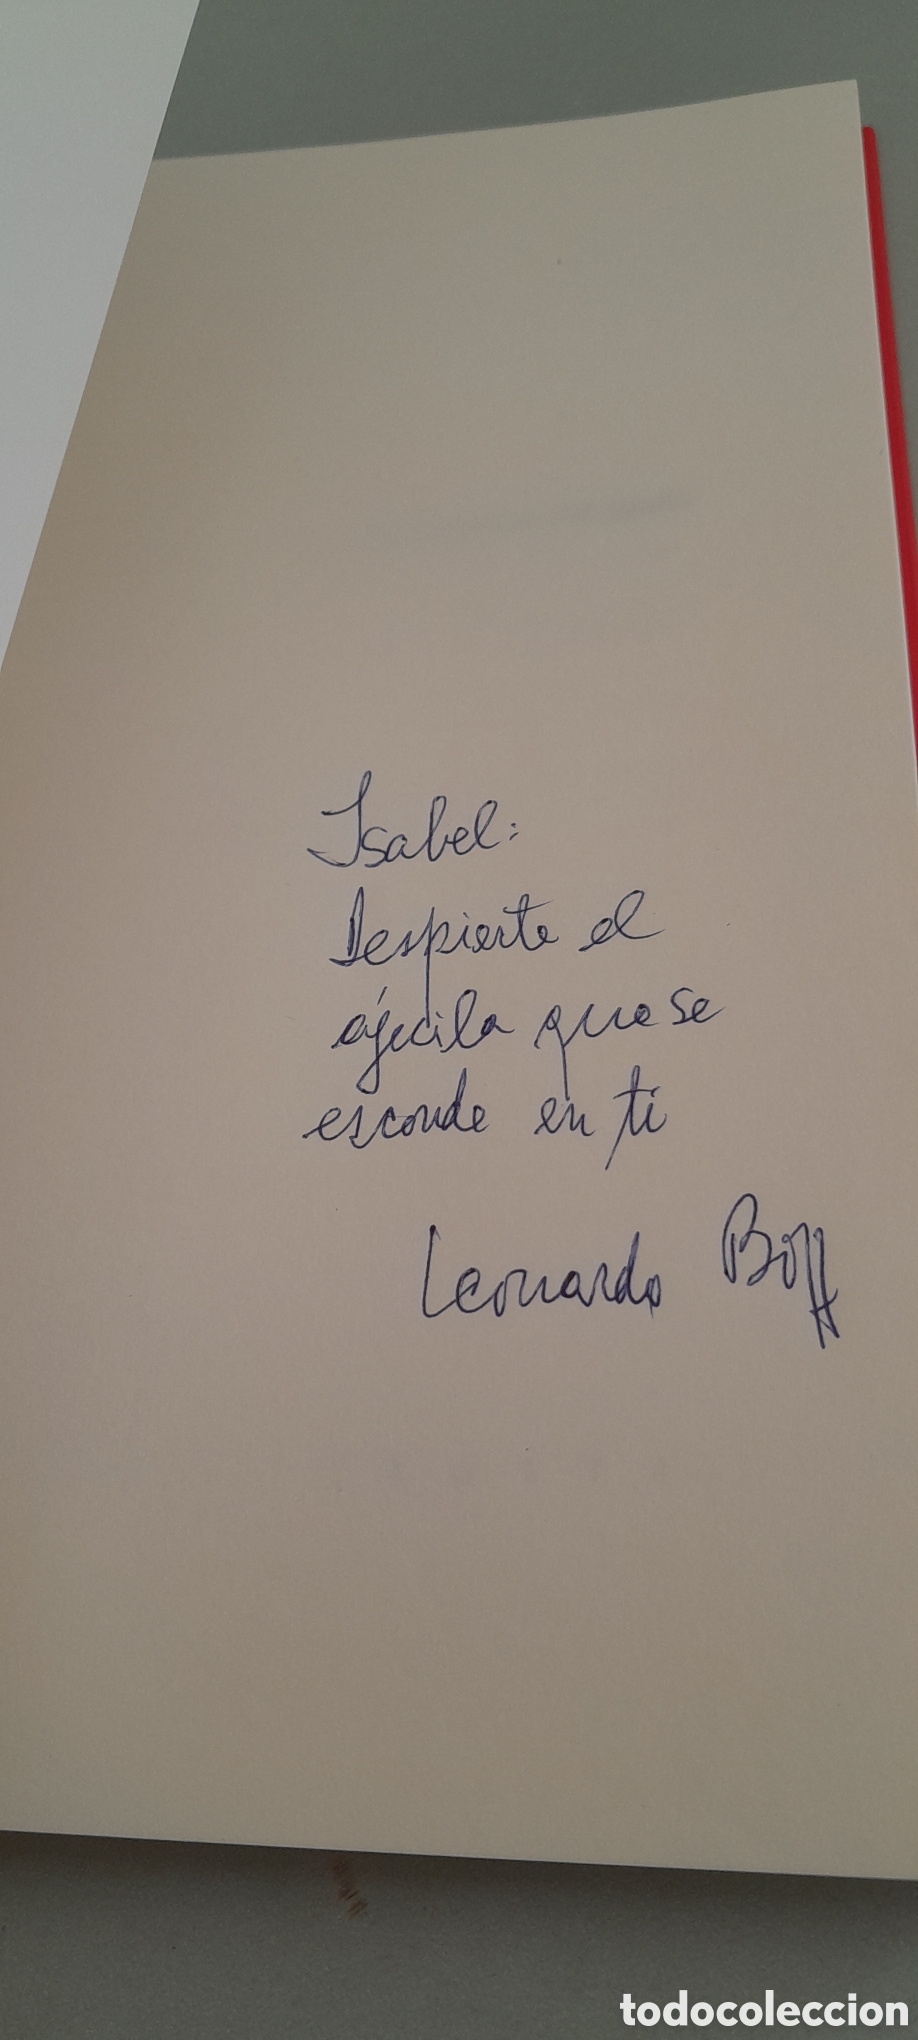 Isabel:
Despierte el
águila que se
esconde en ti
Leonardo Boff
todocoleccion